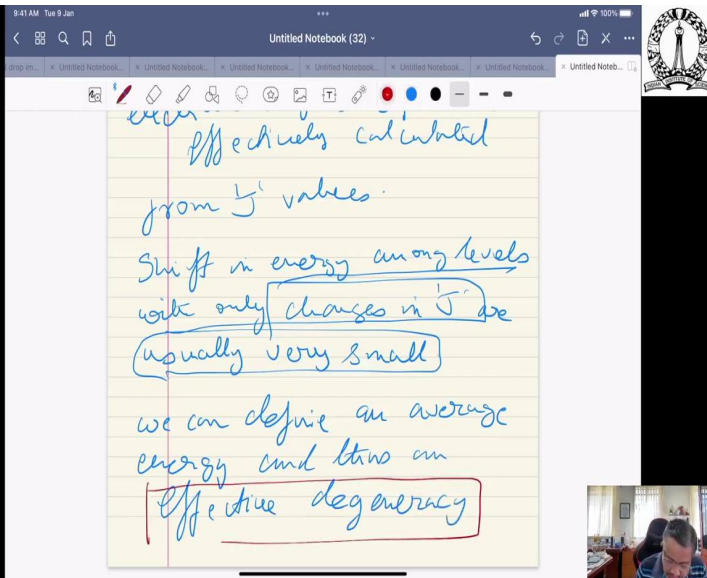 9:41 AM Tue 9 Jan
100%
Untitled Notebook (32)
drop im... × Untitled Notebook... × Untitled Notebook... × Untitled Notebook... × Untitled Notebook... × Untitled Notebook... × Untitled Notebook... × Untitled Noteb...
effectively calculated
from 'J' values.
Shift in energy among levels
with only changes in 'J' are
usually very small
we can define an average
energy and thus an
effective degeneracy